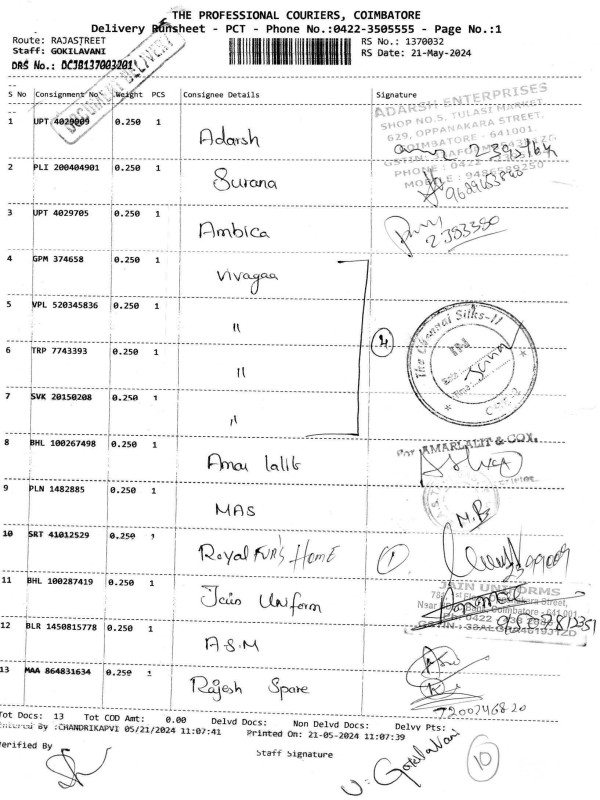 THE PROFESSIONAL COURIERS, COIMBATORE
Delivery Runsheet - PCT - Phone No.:0422-3505555 - Page No.:1
Route: RAJASTREET
RS No.: 1370032
Staff: GOKILAVANI
RS Date: 21-May-2024
DRS No.: DCJB137003201
DOCUMENT DELIVERY
S No Consignment No Weight PCS Consignee Details Signature
ADARSH ENTERPRISES
SHOP NO.5, TULASI MARKET,
629, OPPANAKARA STREET,
COIMBATORE - 641001.
PHONE : 0422
MOBILE :
1 UPT 4029009 0.250 1 Adarsh
2 PLI 200404901 0.250 1 Surana
3 UPT 4029705 0.250 1 Ambica
2383380
4 GPM 374658 0.250 1 Vivagaa
5 VPL 520345836 0.250 1 "
4
The Chennai Silks-II
6 TRP 7743393 0.250 1 "
7 SVK 20150208 0.250 1 "
8 BHL 100267498 0.250 1 Amar lalit
For AMARLALIT & COY.
9 PLN 1482885 0.250 1 MAS
M.B
10 SRT 41012529 0.250 1 Royal FUR'S HOME 1
11 BHL 100287419 0.250 1 Jain Uniform
JAIN UNIFORMS
Coimbatore - 641 001
12 BLR 1450815778 0.250 1 A.S.M
13 MAA 864831634 0.250 1 Rajesh Spare
7200246820
Tot Docs: 13 Tot COD Amt: 0.00 Delvd Docs: Non Delvd Docs: Delvy Pts:
Entered By :CHANDRIKAPVI 05/21/2024 11:07:41 Printed On: 21-05-2024 11:07:39
Verified By
Staff Signature
V. Gokilavani
10